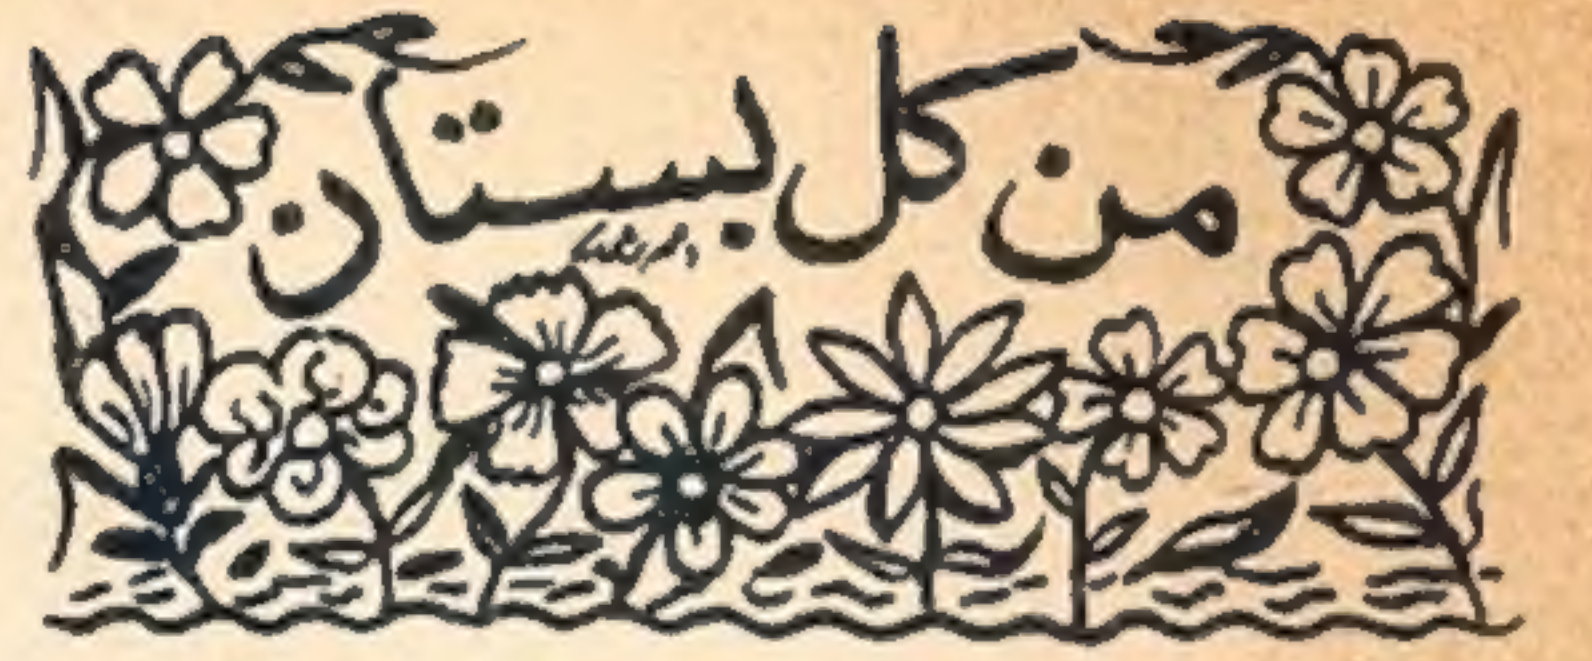 من كل بستان